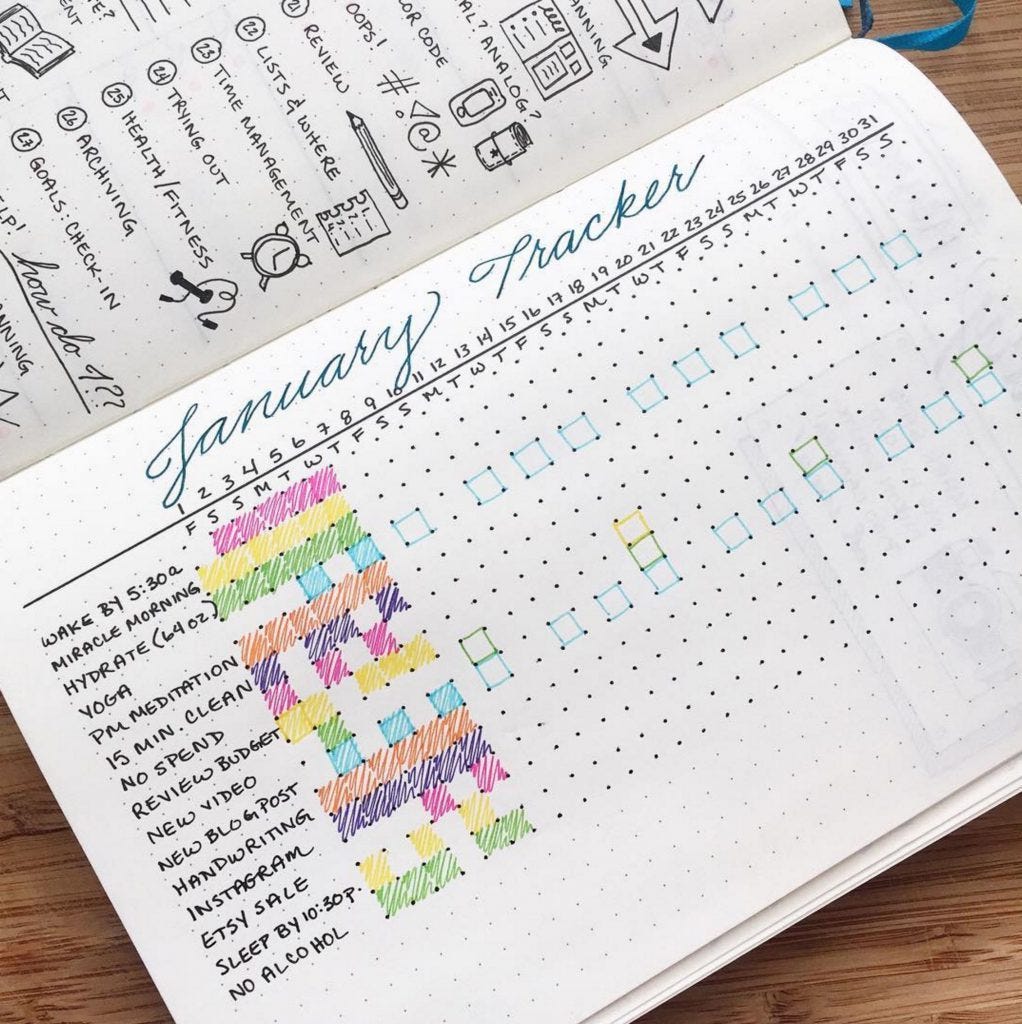 ANNING
AL? ANALOG?
OR CODE
OOPS!
21 REVIEW
22 LISTS & WHERE
23 TIME MANAGEMENT
24 TRYING OUT
25 HEALTH/FITNESS
26 ARCHIVING
27 GOALS: CHECK-IN
LP!
NNING
how do I??
# ! @ *
January Tracker
1 2 3 4 5 6 7 8 9 10 11 12 13 14 15 16 17 18 19 20 21 22 23 24 25 26 27 28 29 30 31
F S S M T W T F S S M T W T F S S M T W T F S S M T W T F S S
WAKE BY 5:30a
MIRACLE MORNING
HYDRATE (64 oz)
YOGA
PM MEDITATION
15 MIN. CLEAN
NO SPEND
REVIEW BUDGET
NEW VIDEO
NEW BLOG POST
HANDWRITING
INSTAGRAM
ETSY SALE
SLEEP BY 10:30p.
NO ALCOHOL